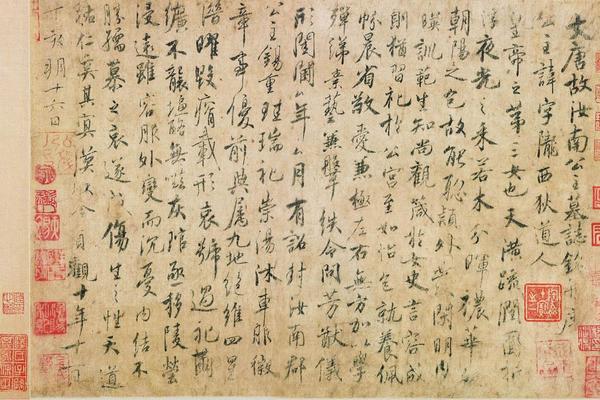 大唐故汝南公主墓誌銘并序
公主諱字隴西狄道人
皇帝之第三女也天潢疏潤圓折
浮夜光之采若木分暉穠華照
朝陽之色故能聡穎外發閑明內
暎訓範生知尚觀箴於女史言容成
則猶習礼於公宮至如怡色就養佩
帉晨省敬愛兼極左右無方加以學
殫綈素藝兼鞶紩令問芳猷儀
形閨閫厶年厶月有詔封汝南郡
公主錫重珪瑞礼崇湯沐車服徽
章事優前典屬九地絕維四星
潛曜毀瘠載形哀號過礼繭
纊不襲塩酪無嗞灰琯亟移陵塋
浸遠雖容服外變而沉憂內結不
勝孺慕之哀遂成傷生之性天道
祐仁奚其冥漠以今貞觀十年十一
丁亥朔十六日